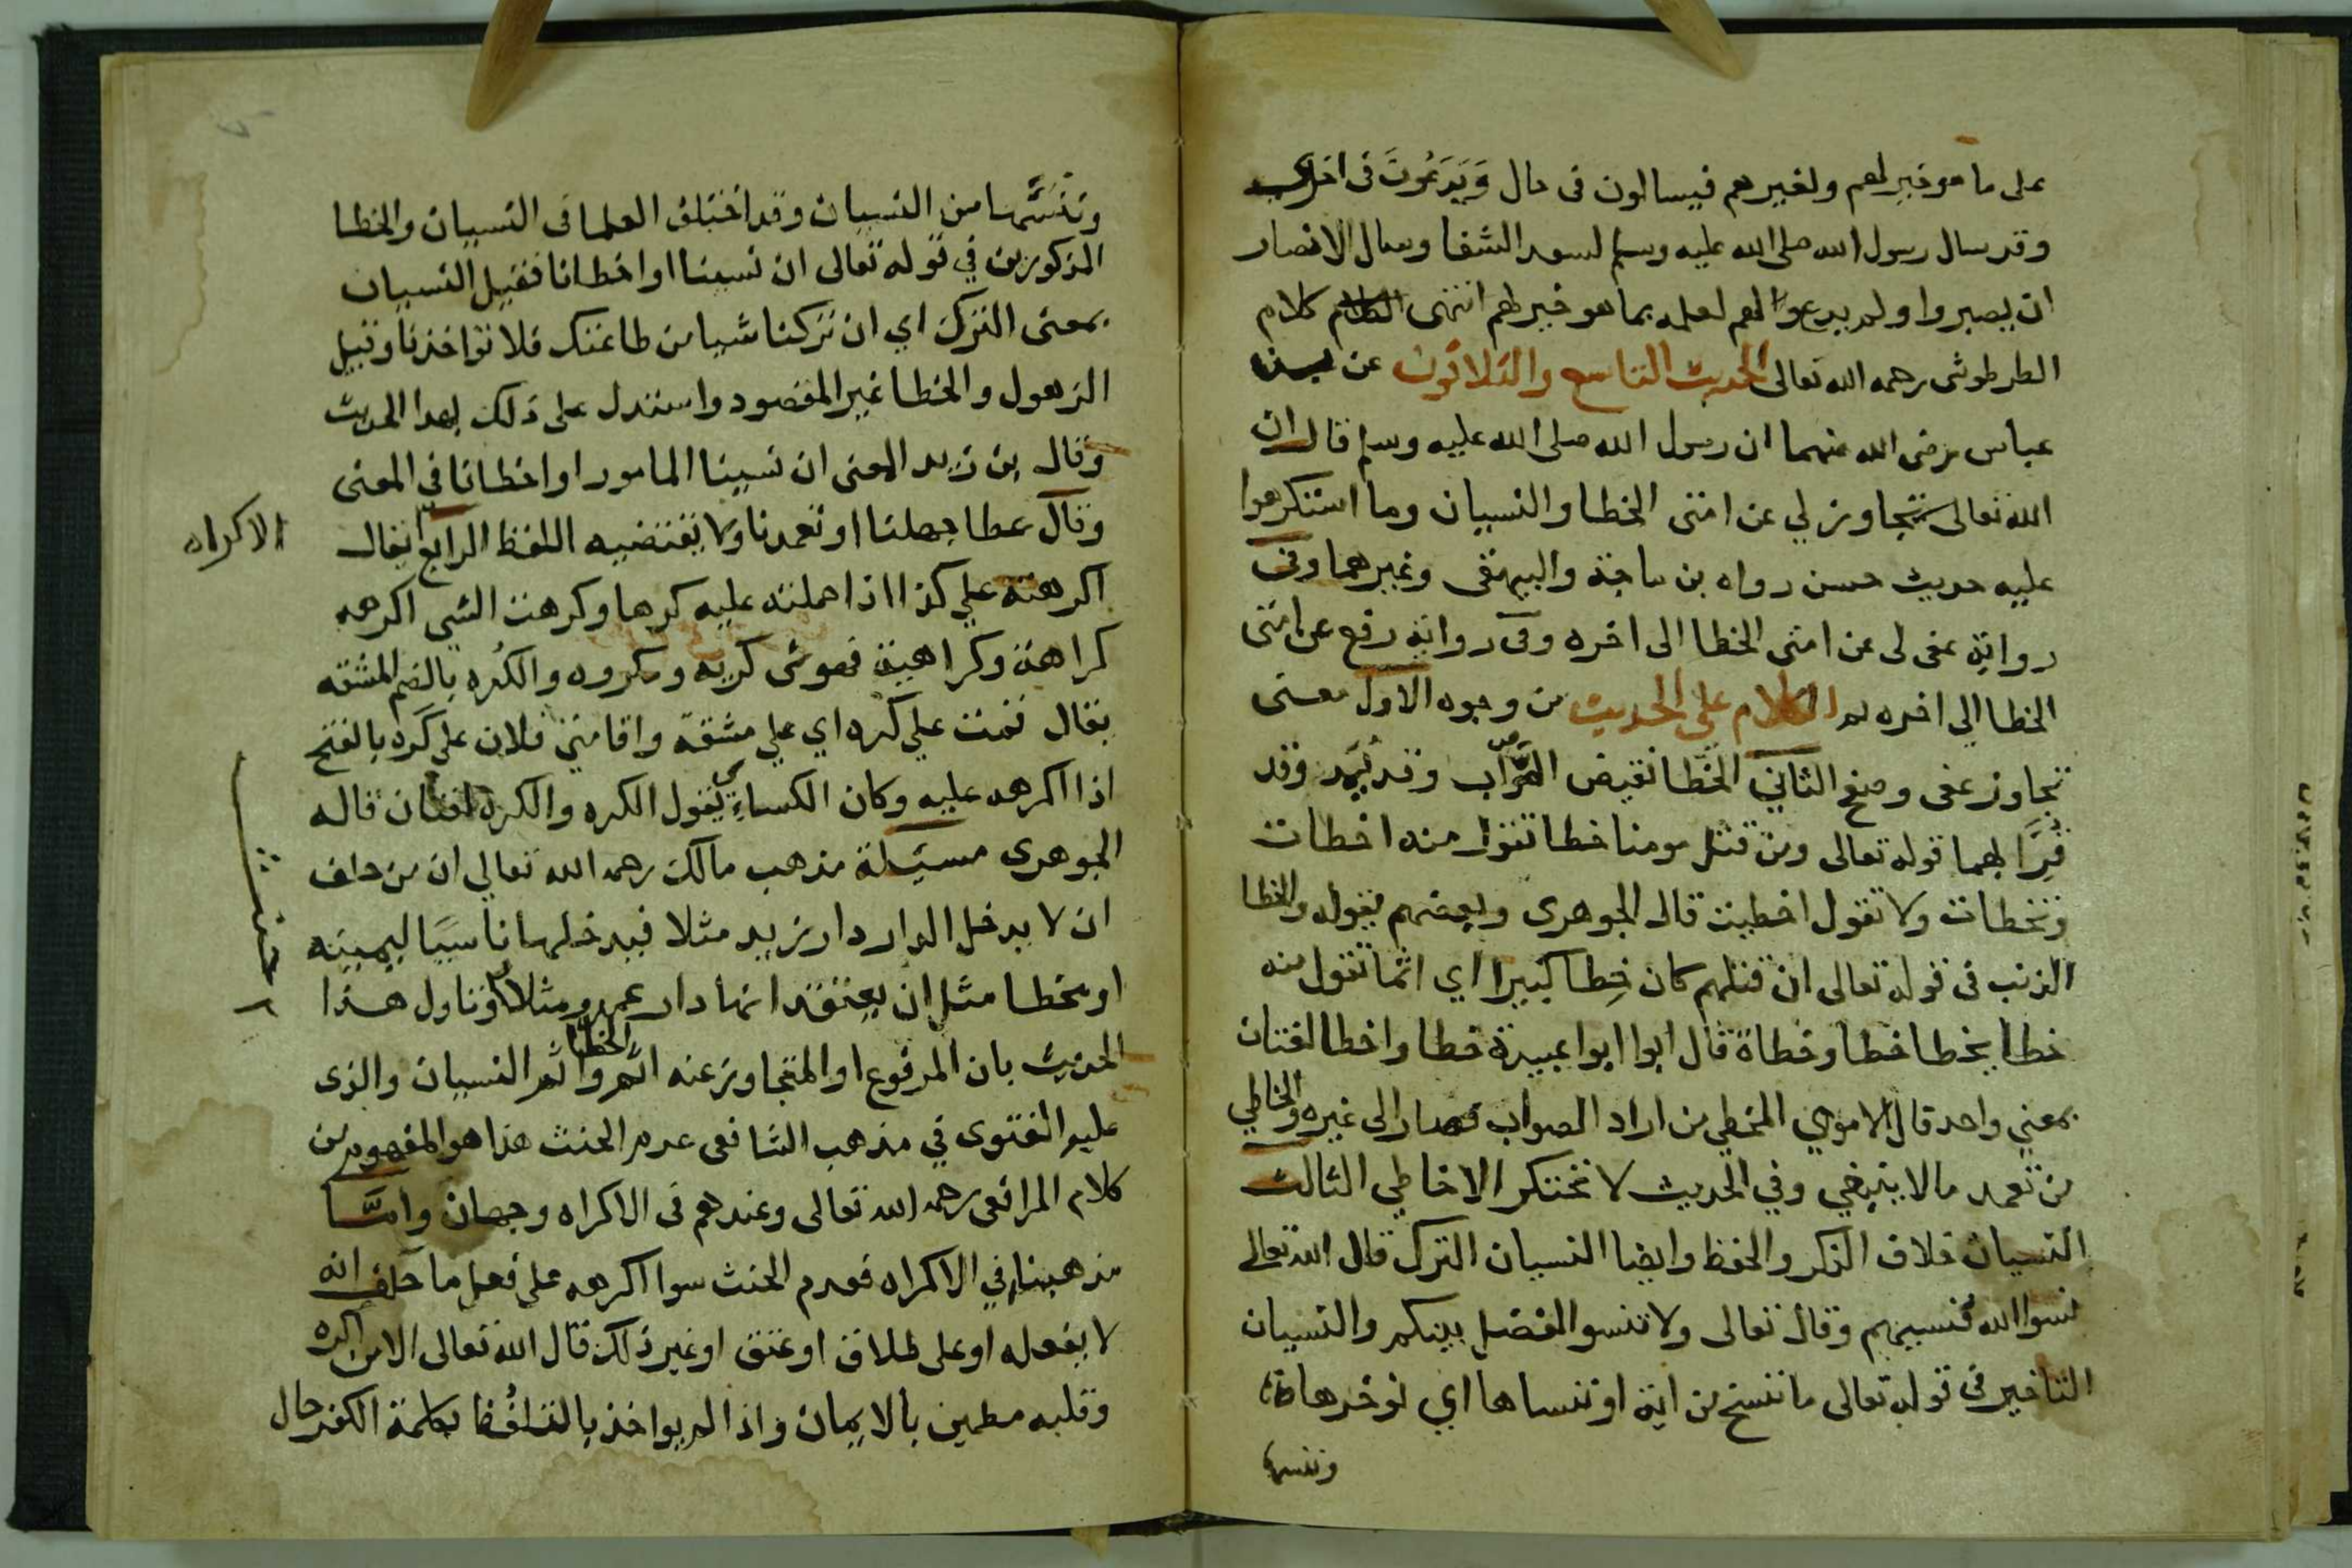 على ما هو خير لهم ولغيرهم فيسالون فى حال وَيَدَعُونَ فى اخرى
وقد سال رسول الله صلى الله عليه وسلم لسعد الشفا وسال الانصار
ان يصبروا ولم يدعوا لهم لعلمه بما هو خير لهم انتهى كلام
الطرطوشى رحمه الله تعالى الحديث التاسع والثلاثون عن بن
عباس رضى الله عنهما ان رسول الله صلى الله عليه وسلم قال ان
الله تعالى تجاوز لي عن امتى الخطا والنسيان وما استكرهوا
عليه حديث حسن رواه بن ماجة والبيهقى وغيرهما وفى
رواية عفى لى عن امتى الخطا الى اخره وفى رواية رفع عن امتى
الخطا الي اخره الكلام على الحديث من وجوه الاول معنى
تجاوز عفى وصفح الثاني الخطا نقيض الصواب وقد يُمَد وقد
قُرِاَ بهما قوله تعالى ومن قتل مومنا خطا تقول منه اخطات
وتخطات ولا تقول اخطيت قال الجوهرى وبعضهم يقوله والخطا
الذنب فى قوله تعالى ان قتلهم كان خِطا كبيرا اي اثما تقول منه
خطا يخطا خطا وخطاة قال ابوا ابوا عبيدة خطا واخطا لغتان
بمعني واحد قال الاموي المخطي من اراد الصواب فصار الى غيره والخاطي
من تعمد مالا ينبغي وفي الحديث لا يحتكر الا خاطي الثالث
النسيان خلاف الذكر والحفظ وايضا النسيان الترك قال الله تعالى
نسوا الله فنسيهم وقال تعالى ولا تنسوا الفضل بينكم والنسيان
التاخير فى قوله تعالى ما ننسخ من اية او ننساها اي نوخرها
وننسها
وننسّها من النسيان وقد اختلف العلما فى النسيان والخطا
المذكورين في قوله تعالى ان نسينا او اخطانا فقيل النسيان
بمعنى الترك اي ان تركنا شيا من طاعتك فلا تواخذنا وقيل
الذهول والخطا غير المقصود واستدل على ذلك بهذا الحديث
وقال بن زيد المعنى ان نسينا المامور او اخطانا في المعنى
وقال عطا جهلنا او تعمدنا ولا يقتضيه اللفظ الرابع يقال
الاكراه
اكرهته علي كذا اذا حملته عليه كرها وكرهت الشي اكرهه
كراهة وكراهية فهو شى كريه ومكروه والكُره بالضم المشقه
يقال قمت علي كُره اي علي مشقة واقامني فلان علي كَره بالفتح
اذا اكرهه عليه وكان الكساءِي يقول الكره والكره لغتان قاله
الجوهرى مسئلة مذهب مالك رحمه الله تعالي ان من حلف
ان لا يدخل الدار دار زيد مثلا فيدخلها ناسيا ليمينه
او مخطا مثل ان يعتقد انها دار عمرو مثلا وتاول هذا
الحديث بان المرفوع او المتجاوز عنه اثم الخطا واثم النسيان والذى
عليه الفتوى في مذهب الشافعى عدم الحنث هذا هو المفهوم من
كلام الرافعى رحمه الله تعالى وعندهم فى الاكراه وجهان وامّا
مذهبنا في الاكراه فعدم الحنث سوا اكرهه على فعل ما حلف انه
لا يفعله او على طلاق او عتق او غير ذلك قال الله تعالى الا من اكره
وقلبه مطمين بالايمان واذا لم يواخذ بالتلفُّظ بكلمة الكفر حال